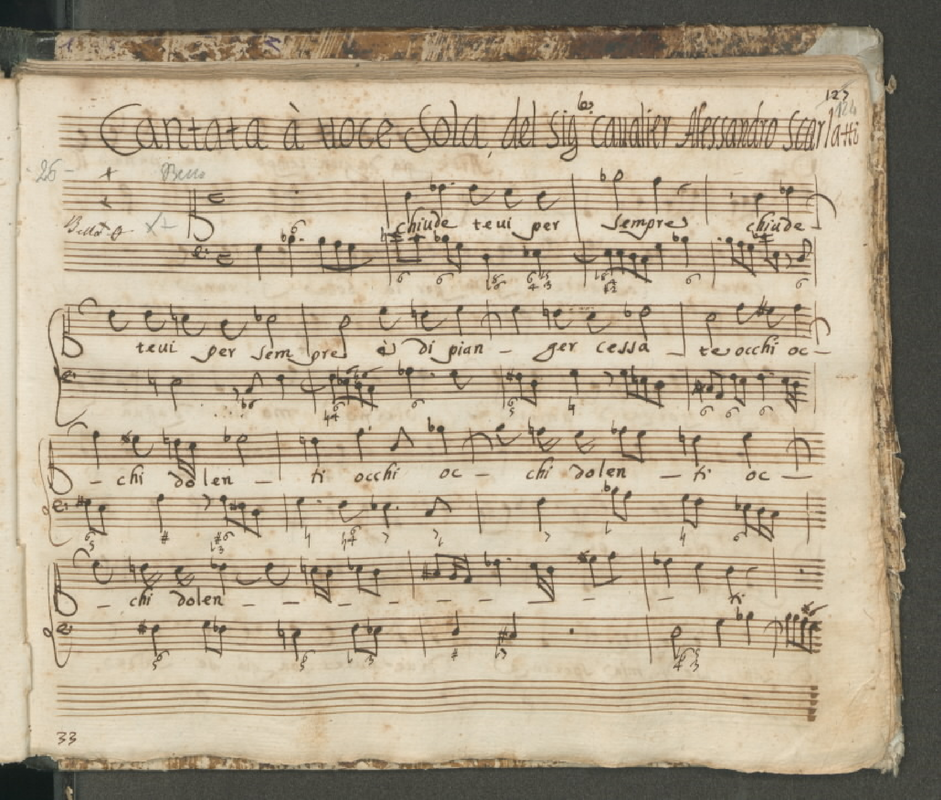 127
124
Cantata à voce Sola, del Sig.r caualier Alessandro Scarlatti
26 - + Bello
chiude teui per sempre chiude
teui per sempre è di pian - ger cessa - te occhi oc -
- chi dolen - ti occhi oc - chi dolen - ti oc -
- chi dolen - - - - - - - - - - ti
33